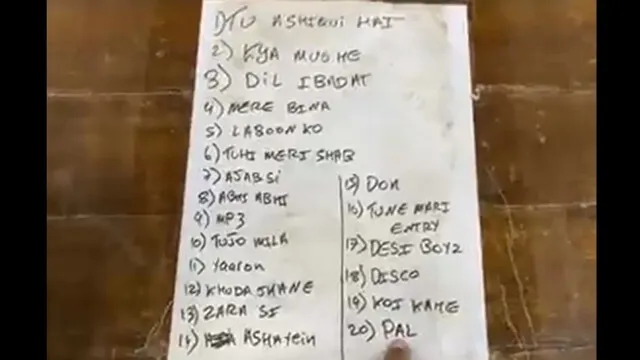 1) TU ASHIQUI HAI
2) KYA MUGHE
3) DIL IBADAT
4) MERE BINA
5) LABOON KO
6) TUHI MERI SHAB
7) AJAB SI
8) ABHI ABHI
9) MP3
10) TUJO MILA
11) Yaaron
12) KHUDA JHANE
13) ZARA SI
14) ASHAYEIN
15) DON
16) TUNE MARI
ENTRY
17) DESI BOYZ
18) DISCO
19) KOI KAHE
20) PAL